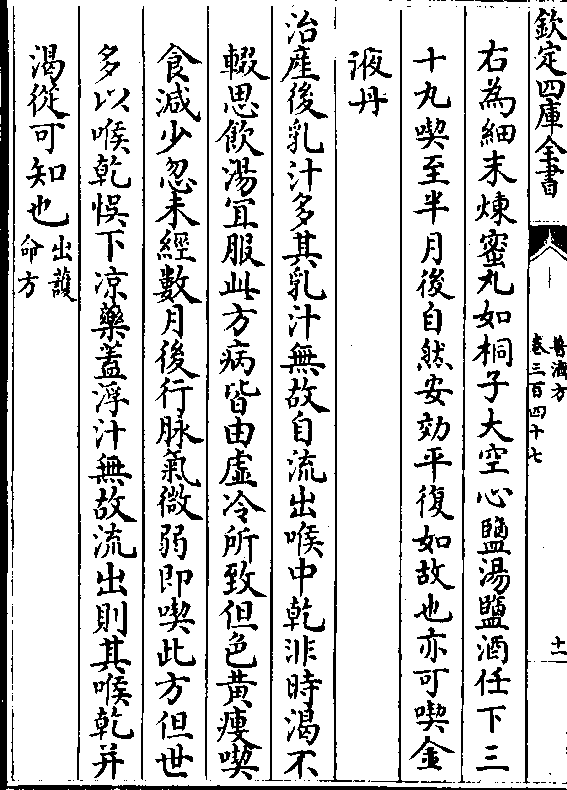 欽定四庫全書
普濟方
卷三百四十七
十一
右為細末煉蜜丸如桐子大空心鹽湯鹽酒任下三
十丸喫至半月後自然安効平復如故也亦可喫金
液丹
治産後乳汁多其乳汁無故自流出喉中乾非時渴不
輟思飲湯宜服此方病皆由虚冷所致但色黄痩喫
食減少忽未經數月後行脉氣微弱即喫此方但世
多以喉乾悞下凉藥蓋浮汁無故流出則其喉乾并
渴從可知也出護
命方